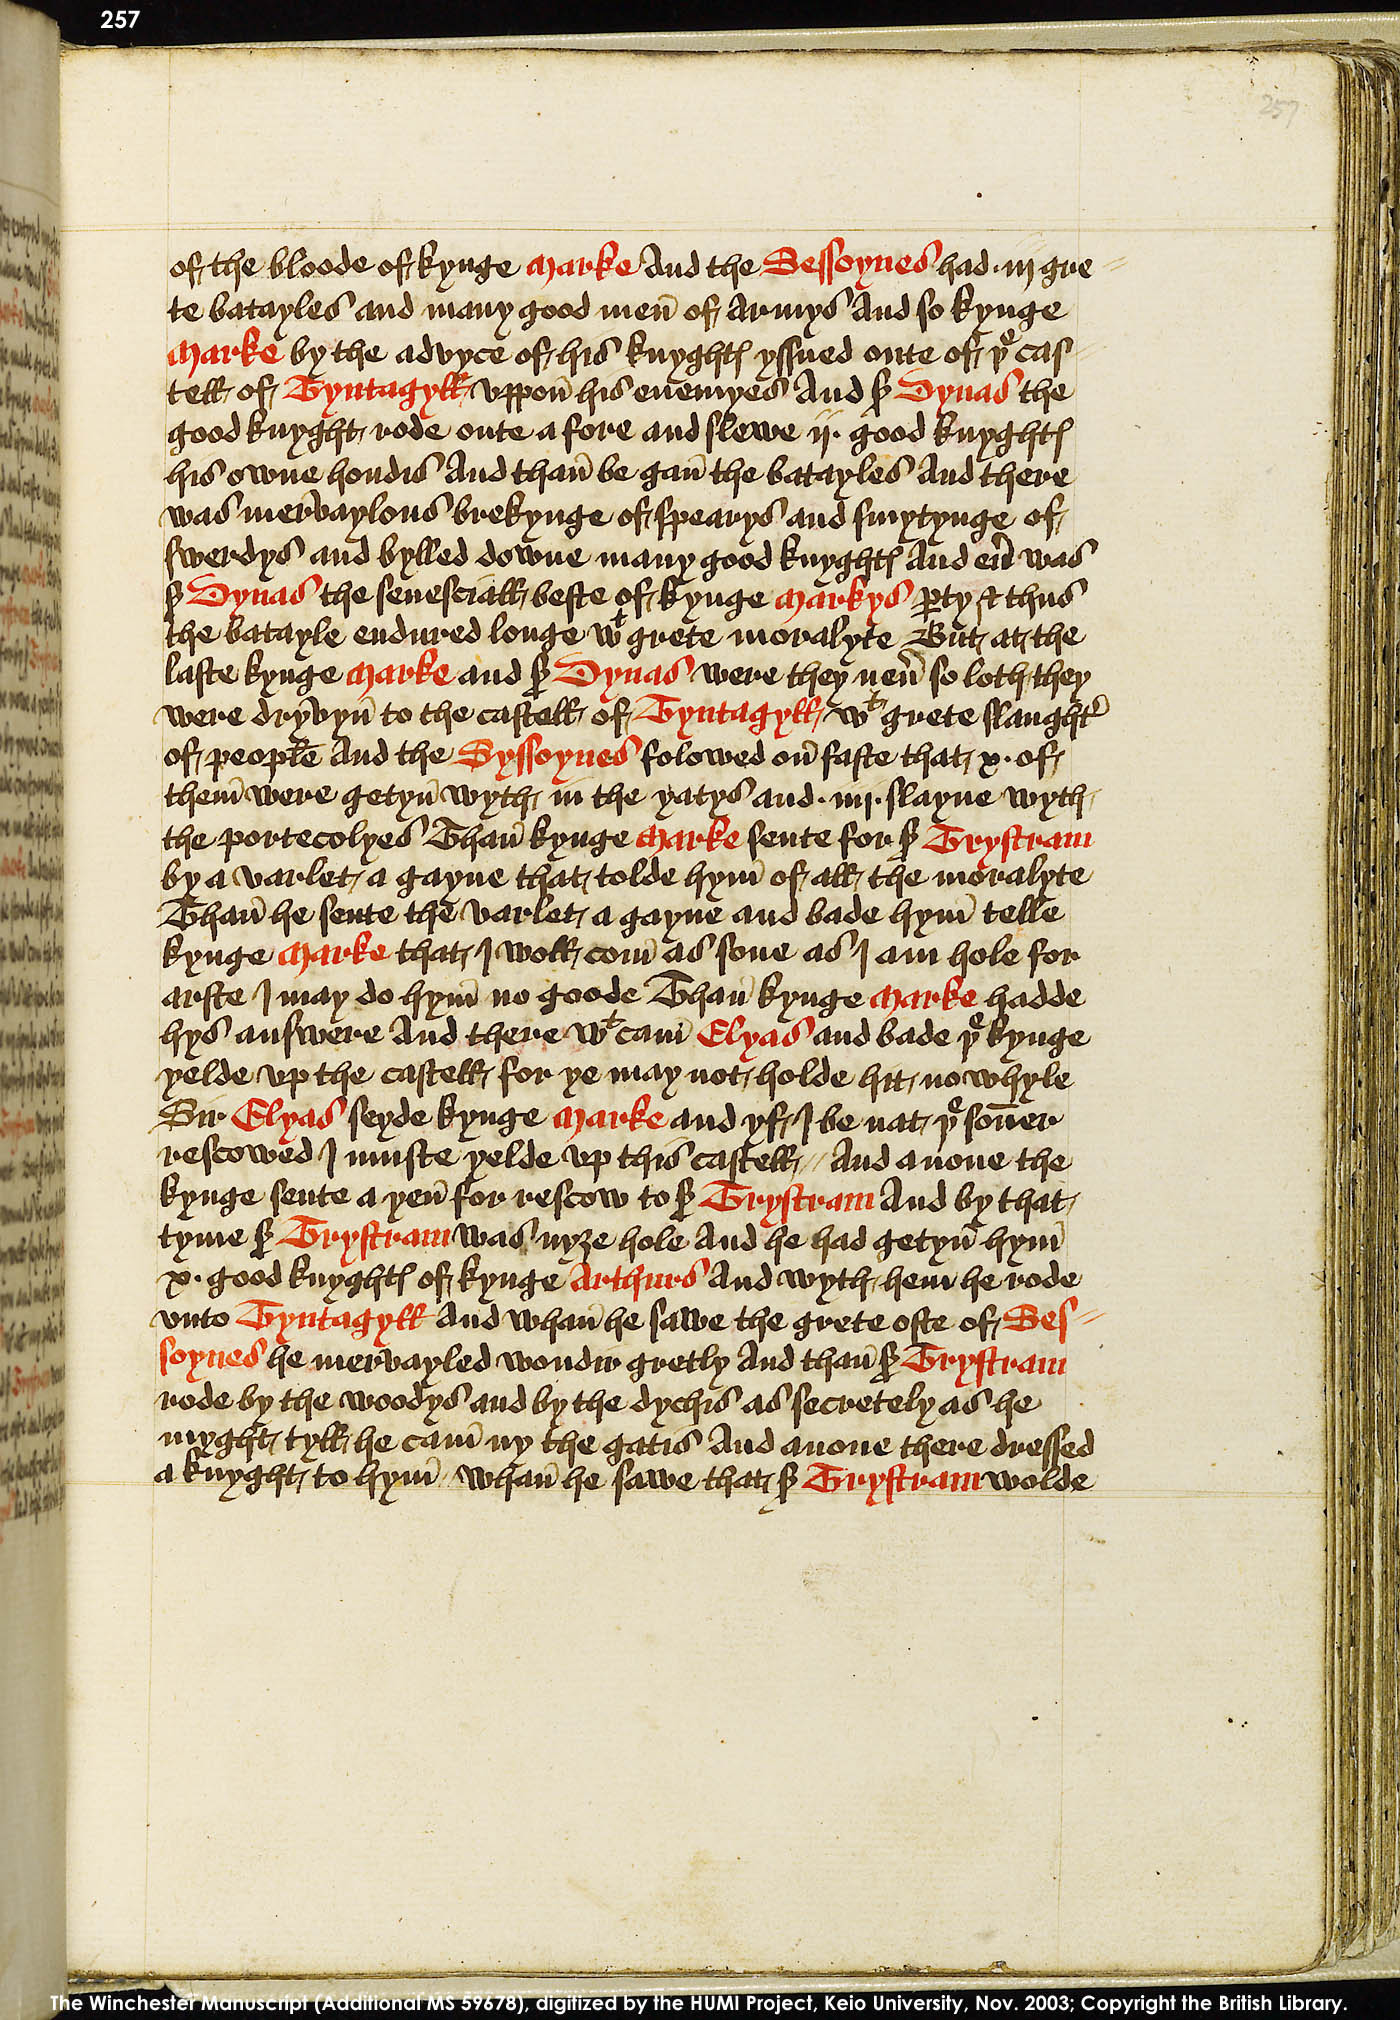 257
257
of the bloode of kynge Marke And the Sessoynes had .iij gre
te batayles and many good men̄ of Armys And so kynge
Marke by the advyce of his knyghtꝭ yssued oute of þe cas
tell of Tyntagyll vppon̄ his enemyes And sr Dynas the
good knyght rode oute a fore and slewe ij. good knyghtꝭ
his owne hondis And than̄ be gan̄ the batayles And there
was mervaylous brekynge of spearys and smytynge of
swerdys and kylled downe many good knyghtꝭ And eū was
sr Dynas the senesciall beste of kynge Markys ꝑty & thus
the batayle endured longe wt grete moralyte But at the
laste kynge Marke and sr Dynas were they neū so loth they
were dryvyn̄ to the castell of Tyntagyll wt grete slaughtr
of people And the Syssoynes folowed on̄ faste that .x. of
them̄ were getyn̄ wyth in the yatys and .iiij. slayne wyth
the portecolyes Than̄ kynge Marke sente for sr Trystram
by a varlet a gayne that tolde hym̄ of all the moralyte
Than̄ he sente the varlet a gayne and bade hym̄ telle
kynge Marke that I woll com̄ as sone as I am hole for
arste I may do hym̄ no goode Than̄ kynge Marke hadde
hys answere And there wt cam̄ Elyas and bade þe kynge
yelde vp the castell for ye may not holde hit no whyle
Sir Elyas seyde kynge Marke and yf I be nat þe son̄er
rescowed I muste yelde vp this castell // And anone the
kynge sente a yen̄ for rescow to sr Trystram And by that
tyme sr Trystram was nyȝe hole And he had getyn̄ hym̄
.x. good knyghtꝭ of kynge Arthurs And wyth hem he rode
vnto Tyntagyll And whan̄ he sawe the grete oste of Ses-
soynes he mervayled wondir gretly And than̄ sr Trystram
rode by the woodys and by the dychis as secretely as he
myght tyll he cam̄ ny the gatis And anone there dressed
a knyght to hym̄ whan̄ he sawe that sr Trystram wolde
The Winchester Manuscript (Additional MS 59678), digitized by the HUMI Project, Keio University, Nov. 2003; Copyright the British Library.